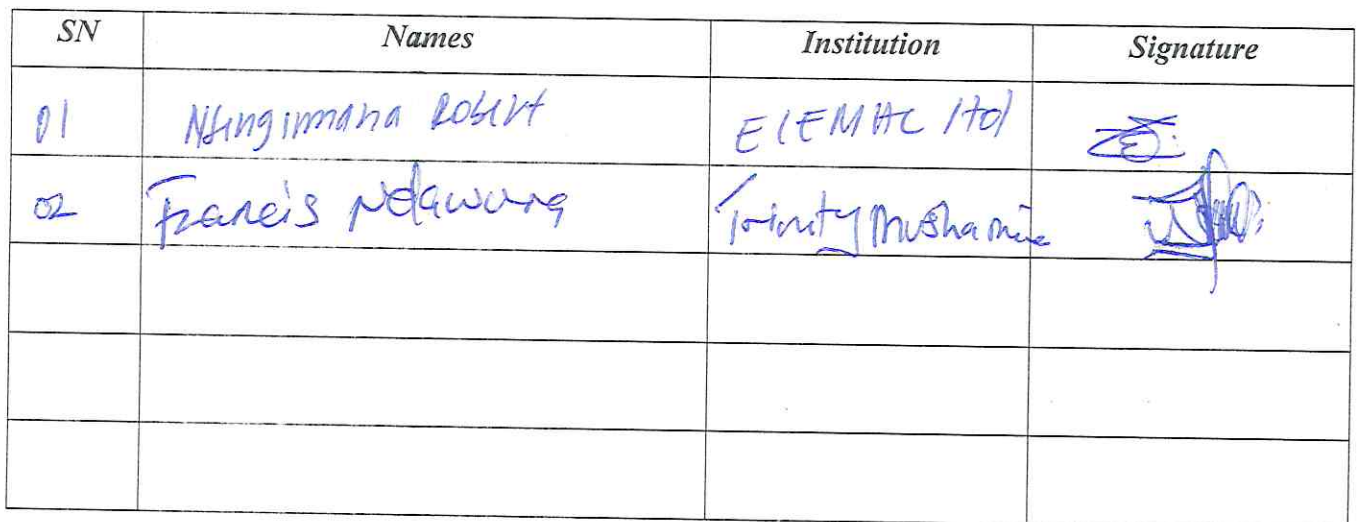 SN Names Institution Signature
01 Nsengimana Robert ELEMAC ltd
02 Francis Ndawura Trinity Musha mine